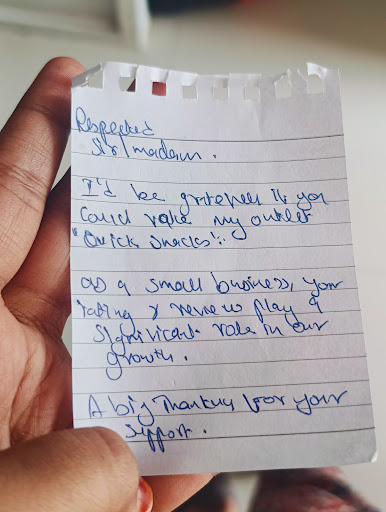 Respected
Sir/madam.
I'd be grateful if you
Could rate my outlet
"Quick Snacks".
as a small business, your
rating & reviews play a
significant role in our
growth.
A big Thankyou for your
support.